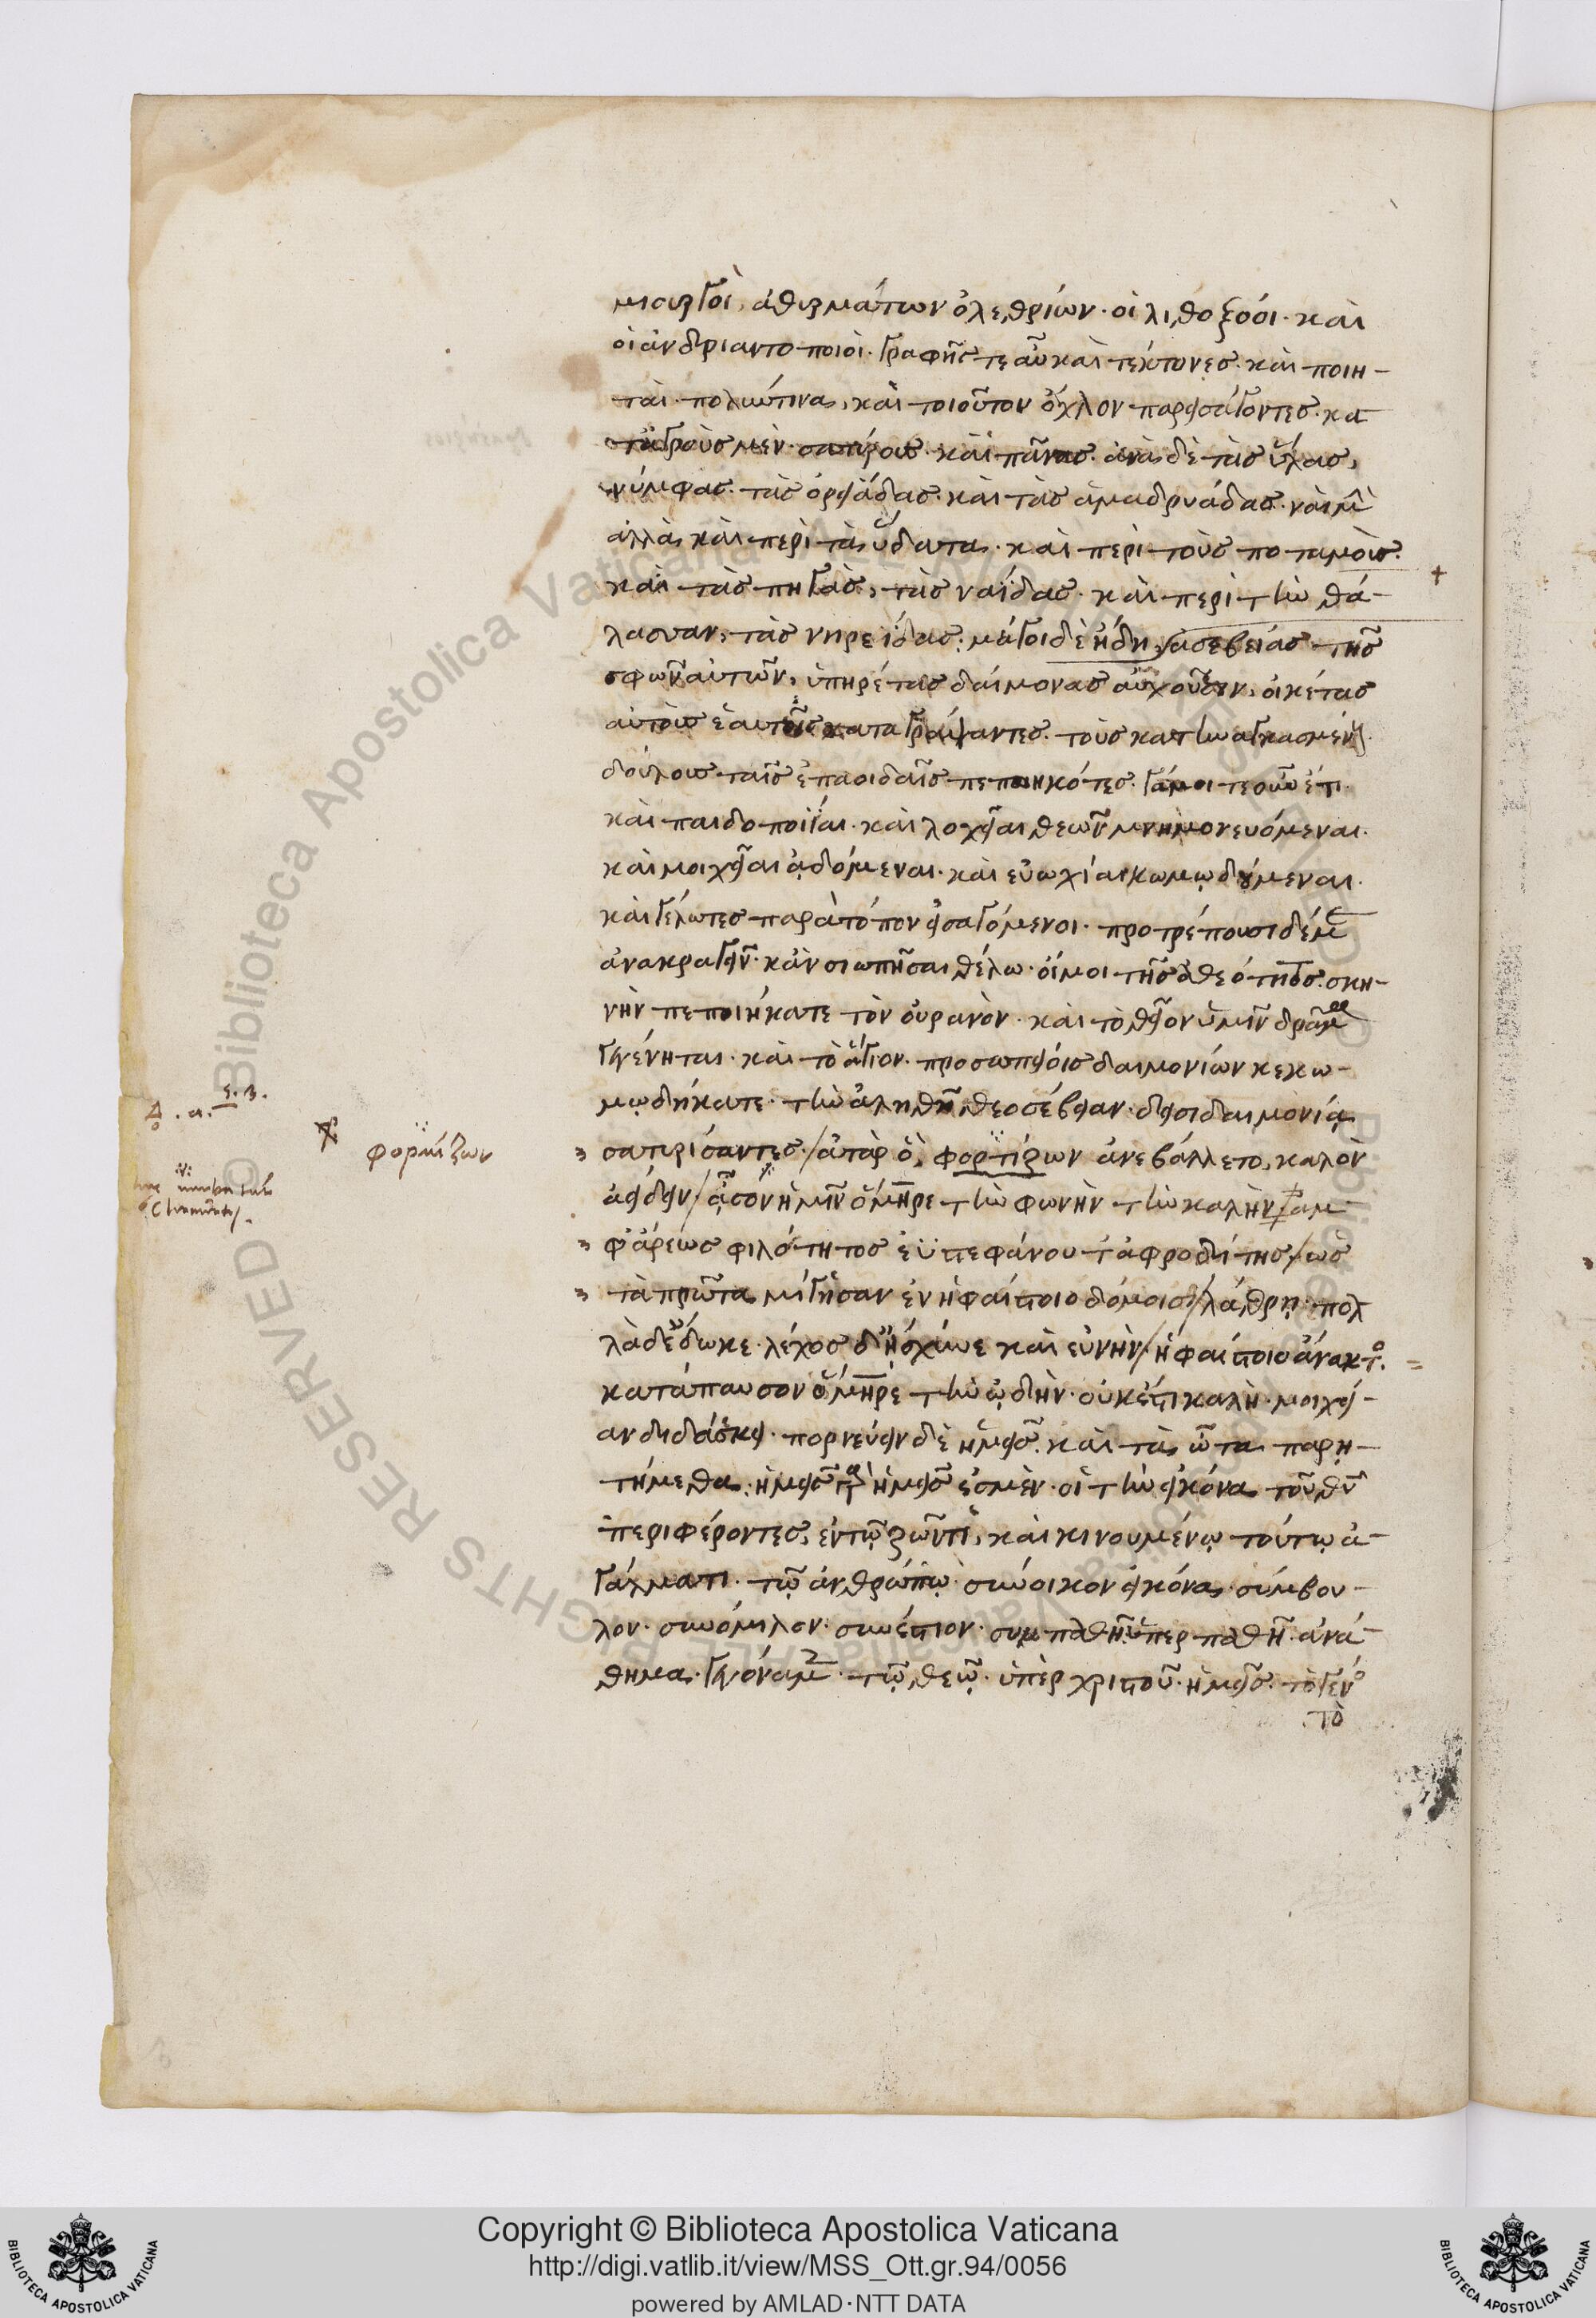 μιουργοὶ, ἀθυρμάτων ὀλεθρίων· οἱ λιθοξόοι· καὶ
οἱ ἀνδριαντοποιοὶ· γραφῆς τε αὖ καὶ τέκτονες· καὶ ποιη-
ταὶ· πολὺν τινα, καὶ τοιοῦτον ὄχλον παρεισάγοντες· κα
τὰ ἀγροὺς μὲν· σατύρους· καὶ πᾶνας· ἀνὰ δὲ τὰς ὕλας,
νύμφας· τὰς ὀρειάδας· καὶ τὰς ἁμαδρυάδας· ναὶ μὴν
ἀλλὰ καὶ περὶ τὰ ὕδατα· καὶ περὶ τοὺς ποταμοὺς·
καὶ τὰς πηγὰς, τὰς ναΐδας· καὶ περὶ τὴν θά-
λασσαν, τὰς νηρεΐδας· μάγοι δὲ ἤδη, ἀσεβείας τῆς
σφῶν αὐτῶν, ὑπηρέτας δαίμονας αὐχοῦσιν, οἰκέτας
αὐτοὺς ἑαυτοῖς καταγράψαντες· τοὺς κατηναγκασμένους
δούλους ταῖς ἐπαοιδαῖς πεποιηκότες· γάμοι τε οὖν ἔτι
καὶ παιδοποιΐαι· καὶ λοχεῖαι θεῶν μνημονευόμεναι·
καὶ μοιχεῖαι ᾀδόμεναι· καὶ εὐωχίαι κωμῳδούμεναι·
καὶ γέλωτες παρὰ τόπον εἰσαγόμενοι· προτρέπουσι δέ με
ἀνακραγεῖν· κἂν σιωπῆσαι θέλω· οἴμοι τῆς ἀθεότητος· σκη-
νὴν πεποιήκατε τὸν οὐρανὸν· καὶ τὸ θεῖον ὑμῖν δρᾶμα
γεγένηται· καὶ τὸ ἅγιον· προσωπείοις δαιμονίων κεκω-
μῳδήκατε· τὴν ἀληθῆ θεοσέβειαν· δεισιδαιμονίᾳ
σατυρίσαντες· / ἀτὰρ ὁ, φορτίζων ἀνεβάλλετο, καλὸν
φορμίζων
ἀείδειν / ᾆσον ἡμῖν ὅμηρε τὴν φωνὴν τὴν καλὴν / ἀμ
φ' ἄρεως φιλότητος ἐϋστεφάνου τ' ἀφροδίτης / ὡς
τὰ πρῶτα μίγησαν ἐν ἡφαίστοιο δόμοισι / λάθρῃ· πολ
λὰ δ' ἔδωκε· λέχος δ' ᾔσχυνε καὶ εὐνὴν / ἡφαίστοιο ἄνακτος·
κατάπαυσον ὅμηρε τὴν ᾠδὴν· οὐκ ἔστι καλὴ· μοιχεί-
αν διδάσκει· πορνεύειν δὲ ἡμεῖς· καὶ τὰ ὦτα παρῃ-
τήμεθα· ἡμεῖς γὰρ ἡμεῖς ἐσμὲν· οἱ τὴν εἰκόνα τοῦ θεοῦ
περιφέροντες, ἐν τῷ ζῶντι, καὶ κινουμένῳ τούτῳ ἀ-
γάλματι· τῷ ἀνθρώπῳ· σύνοικον εἰκόνα, σύμβου-
λον· συνόμιλον· συνέστιον· συμπαθῆ· ὑπερπαθῆ· ἀνά-
θημα· γεγόναμεν· τῷ θεῷ· ὑπὲρ χριστοῦ· ἡμεῖς· τὸ γένος
τὸ